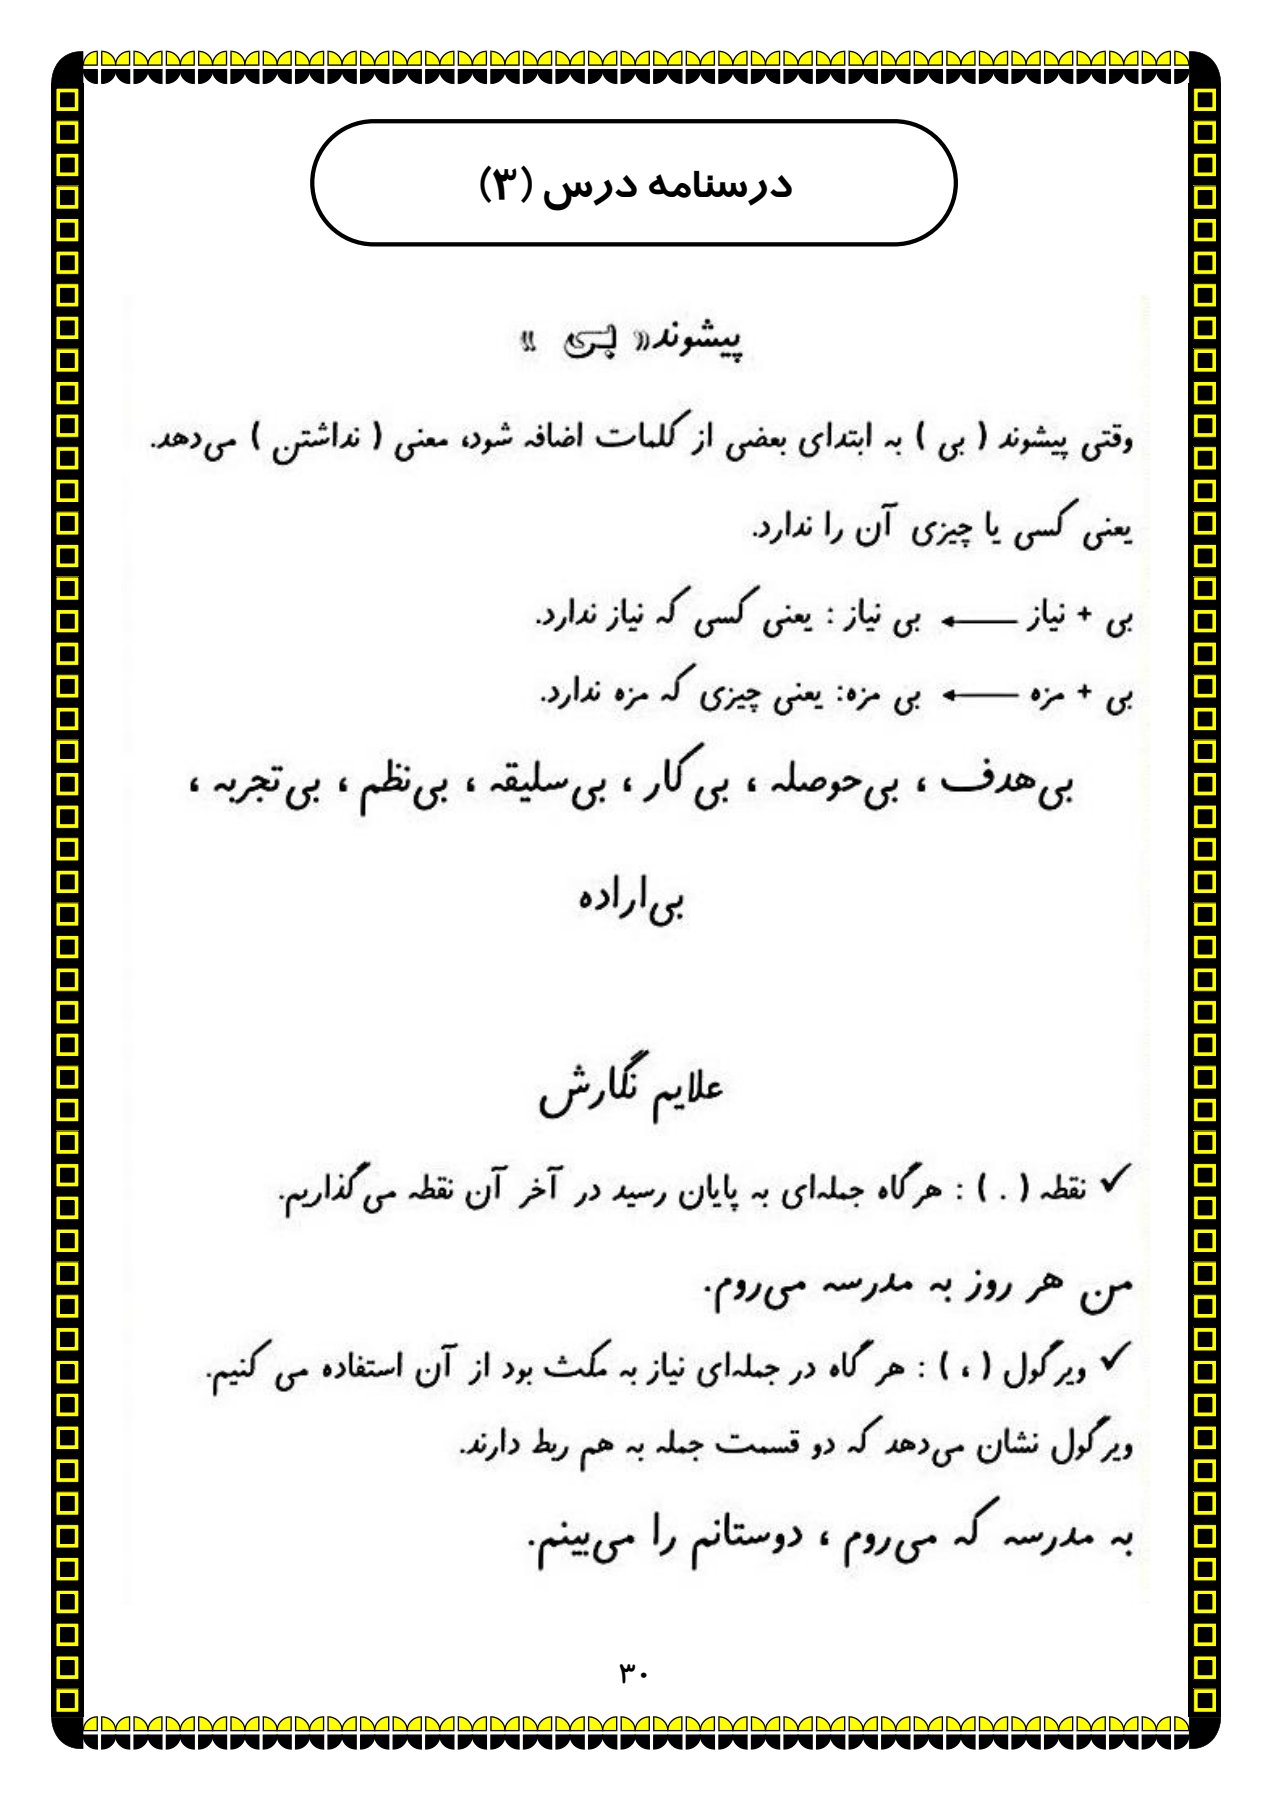 درسنامه درس (۳)
پیشوند« بی »
وقتی پیشوند ( بی ) به ابتدای بعضی از کلمات اضافه شود، معنی ( نداشتن ) می‌دهد.
یعنی کسی یا چیزی آن را ندارد.
بی + نیاز ← بی نیاز : یعنی کسی که نیاز ندارد.
بی + مزه ← بی مزه: یعنی چیزی که مزه ندارد.
بی‌هدف ، بی‌حوصله ، بی‌کار ، بی‌سلیقه ، بی‌نظم ، بی‌تجربه ،
بی‌اراده
علایم نگارش
✓ نقطه ( . ) : هرگاه جمله‌ای به پایان رسید در آخر آن نقطه می‌گذاریم.
من هر روز به مدرسه می‌روم.
✓ ویرگول ( ، ) : هر گاه در جمله‌ای نیاز به مکث بود از آن استفاده می کنیم.
ویرگول نشان می‌دهد که دو قسمت جمله به هم ربط دارند.
به مدرسه که می‌روم ، دوستانم را می‌بینم.
۳۰